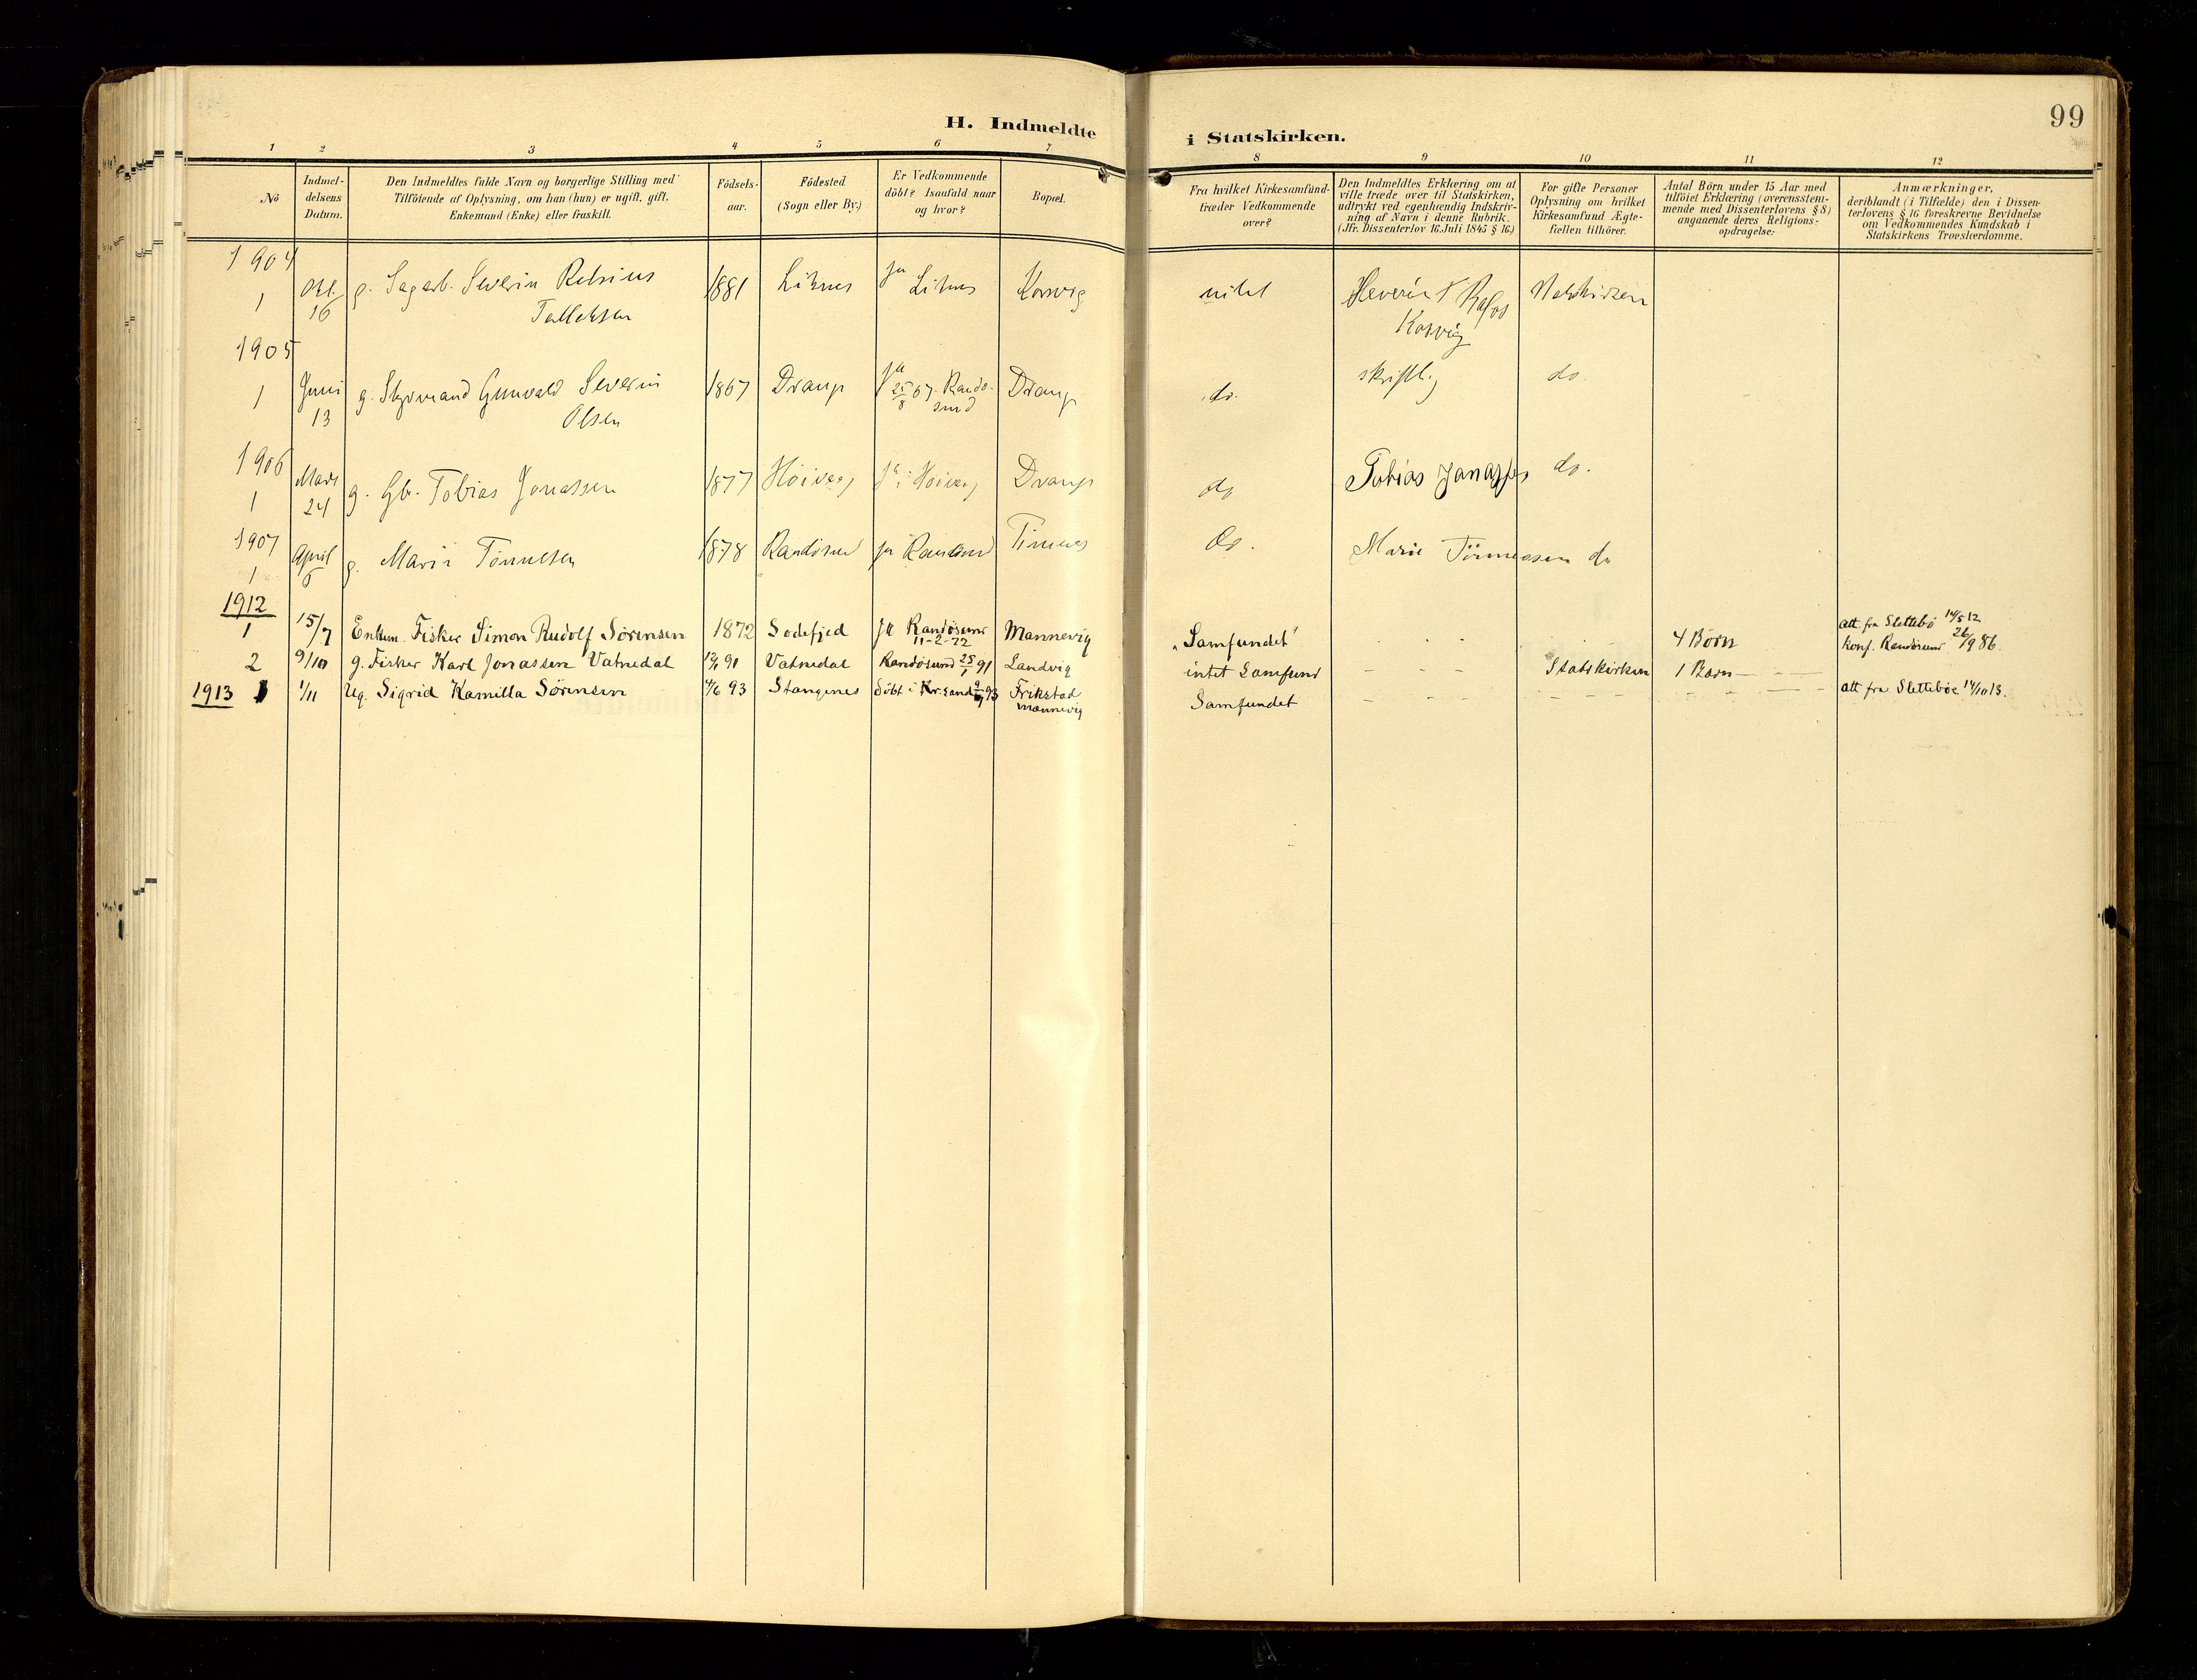 99
H. Indmeldte i Statskirken.
1 2 3 4 5 6 7 8 9 10 11 12
No
Indmel-
delsens
Datum.
Den Indmeldtes fulde Navn og borgerlige Stilling med
Tilföiende af Oplysning, om han (hun) er ugift, gift,
Enkemand (Enke) eller fraskilt.
Födsels-
aar.
Födested
(Sogn eller By.)
Er Vedkommende
döbt? Isaafald naar
og hvor?
Bopæl.
Fra hvilket Kirkesamfund
træder Vedkommende
over?
Den Indmeldtes Erklæring om at
ville træde over til Statskirken,
udtrykt ved egenhændig Indskriv-
ning af Navn i denne Rubrik.
(Jfr. Dissenterlov 16. Juli 1845 § 16.)
For gifte Personer
Oplysning om hvilket
Kirkesamfund Ægte-
fællen tilhörer.
Antal Börn under 15 Aar med
tilföiet Erklæring (overensstem-
mende med Dissenterlovens § 8)
angaaende deres Religions-
opdragelse:
Anmærkninger,
deriblandt (i Tilfælde) den i Dissen-
terlovens § 16 foreskrevne Bevidnelse
om Vedkommendes Kundskab i
Statskirkens Troeslærdomme.
1904
1 Okt. 16 g. Severin 1881 ja Korsvig
Tallaksen
Korsvig
1905
1 Juni 13 g. Styrmand Gunvald Severin 1867 Drange ja 25/8 67 Rando- Drange do. skriftlig do.
Olsen sund
1906
1 Mars 24 g. Gb. Tobias Jonassen 1877 Höivaag ja i Höivaag Drange do Tobias Jonassen do.
1907
1 April 6 g. Marie Tönnesen 1878 Randösund ja Randösund Timenes do. Marie Tönnesen do
1912
1 15/7 Enkem. Fisker Simon Rudolf Sörensen 1872 Sodefjed ja Randösund Mannevig „Samfundet" - - - 4 Börn att. fra Slettebö 14/5 12
11-2-72 konf. Randösund 26/9 86.
2 9/10 g. Fisker Karl Jonassen Vatnedal 91 Vatnedal Randösund 91 Landvig intet Samfund - - - Statskirken 1 Barn - - -
1913 1 1/11 Ug. Sigrid Kamilla Sörensen 4/6 93 Stangenes döbt i Kr.sand 93 Frikstad Samfundet - - - att fra Sletteböe 14/10 13.
Mannevig